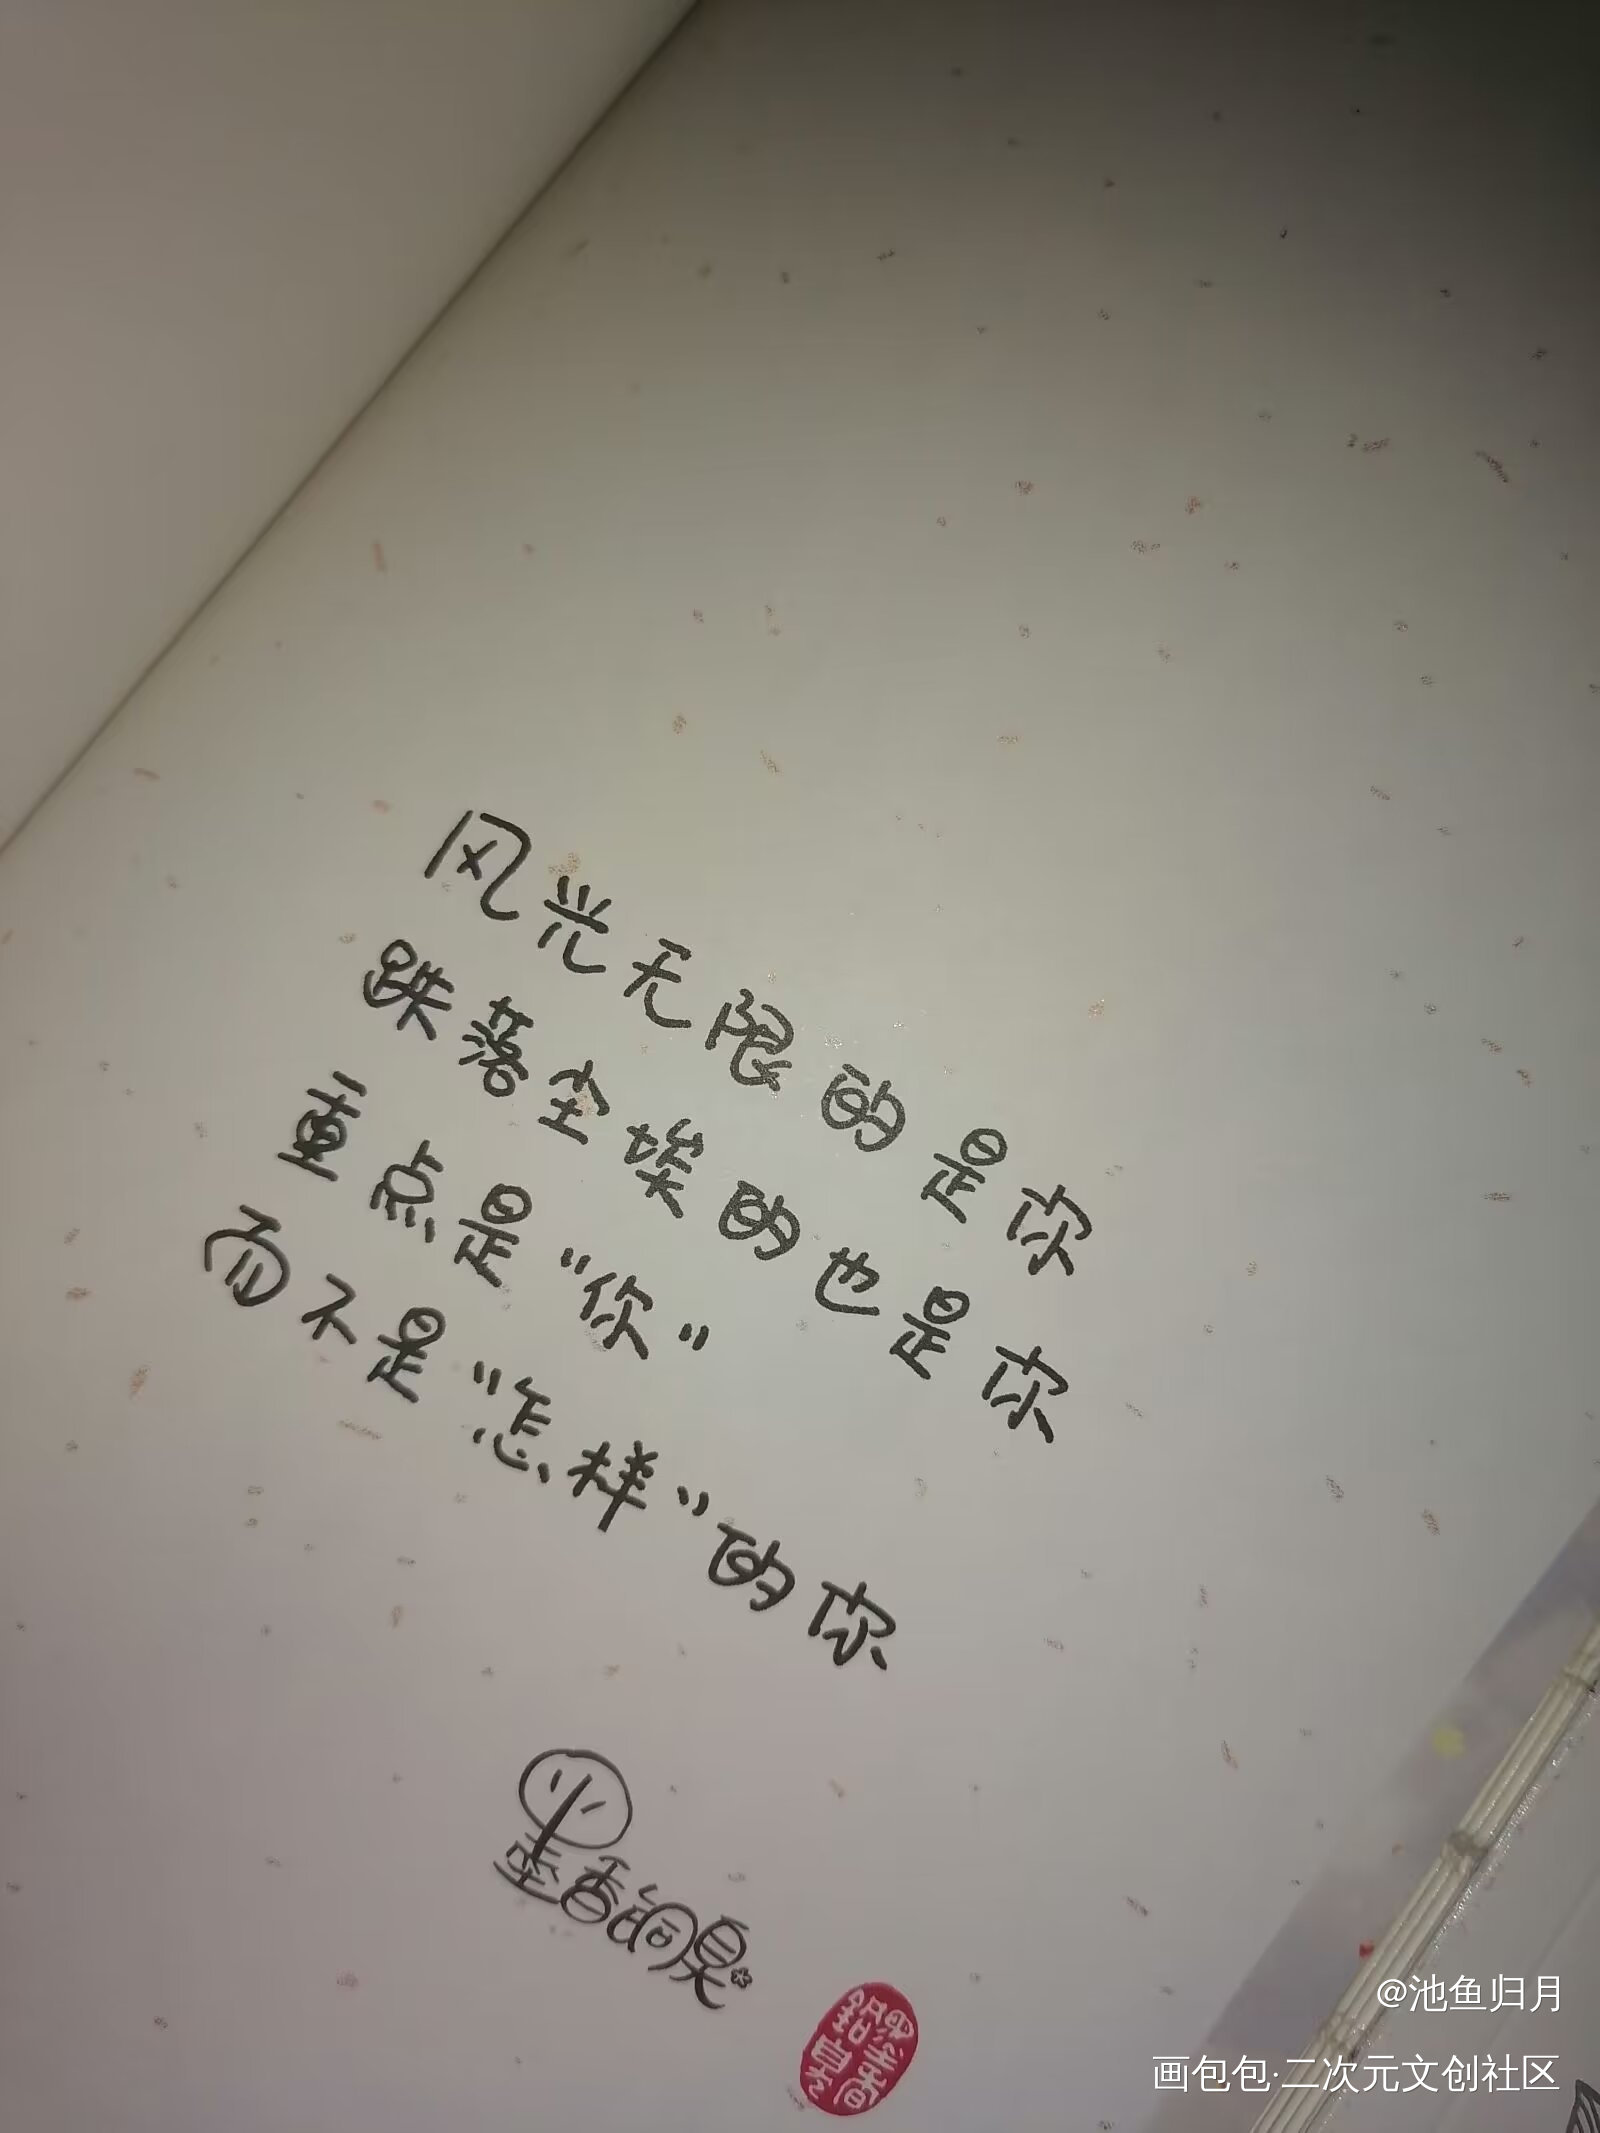 风光无限的是你
跌落尘埃的也是你
重点是“你”
而不是“怎样”的你
墨香铜臭
墨香
铜臭
@池鱼归月
画包包·二次元文创社区